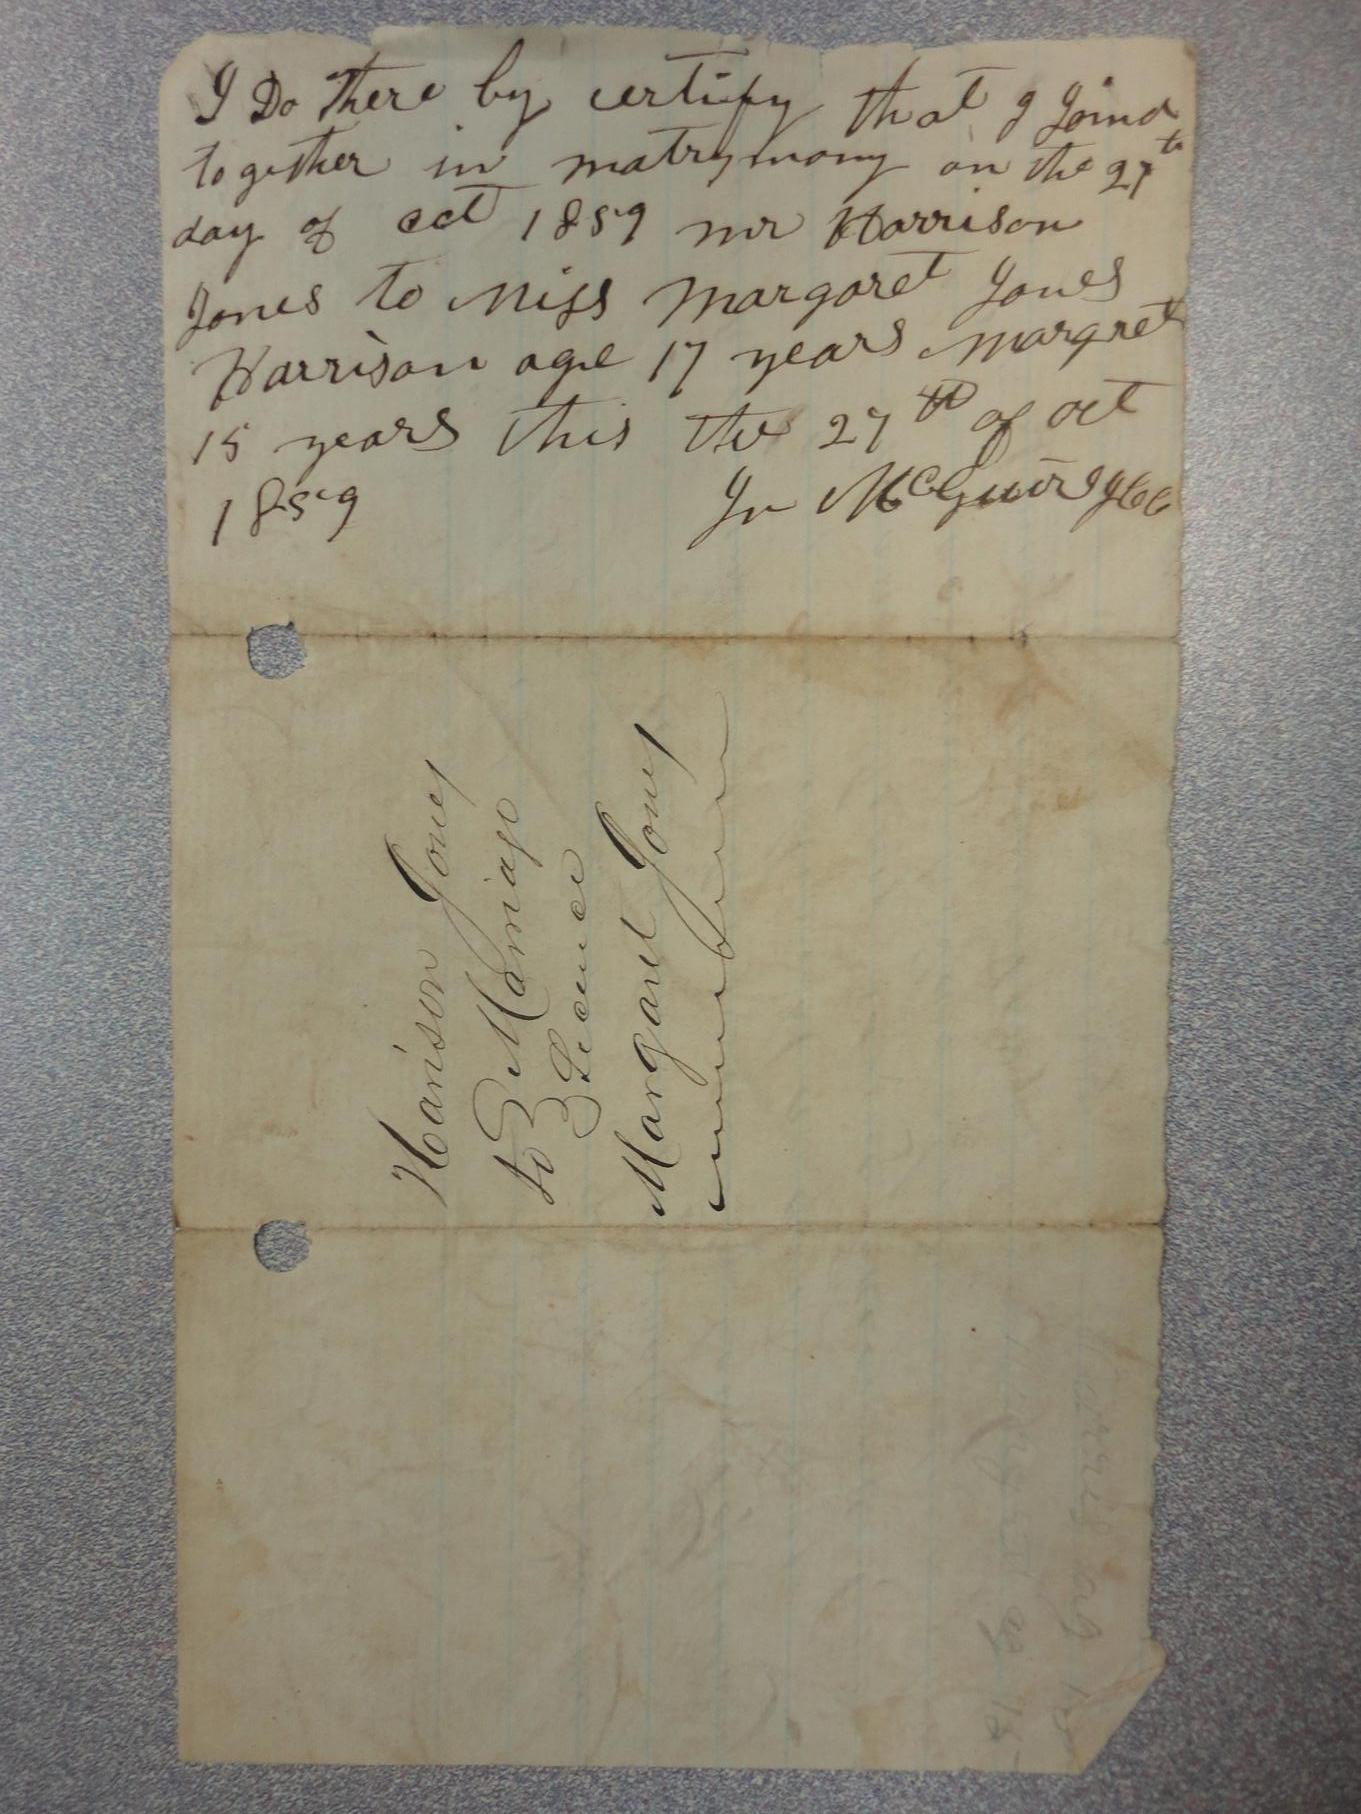 I Do there by certify that I Joind
together in matrymony on the 27th
day of oct 1859 mr Harrison
Jones to Miss Margaret Jones
Harrison age 17 years Margret
15 years this the 27th of oct
1859 Jn McGuire J
Harrison Jones
to Marriage
Licence
Margaret Jones